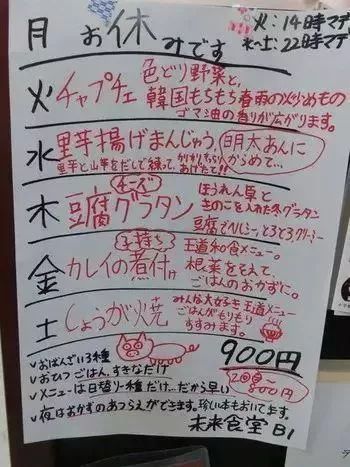 月 お休みです
火:14時マデ
水-土:22時マデ
火 チャプチェ
色どり野菜と、
韓国もちもち春雨の炒めもの
ゴマ油の香りが広がります。
水 里芋揚げまんじゅう、明太あんに
里芋と山芋をだしで練って、かりかもちりあげた!!
からめて…
木 チーズ 豆腐グラタン
ほうれん草と
きのこを入れた冬グラタン
豆腐でヘルシー、とろとろ、クリーミー
金 子持ち カレイの煮付け
王道和食メニュー。
根菜をそえて、
ごはんのおかずに。
土 しょうが焼
みんな大好き王道メニュー
ごはんがもりもり
すすみます。
✓おばんざい3種
✓おひつごはん、すきなだけ
✓メニューは日替り一種だけ…だから早い
✓夜はおかずのあつらえができます。珍しい本もおいてます。
900円
2回目〜
800円
未来食堂 B1